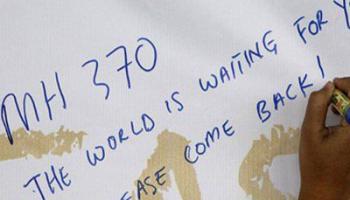 MH 370
THE WORLD IS WAITING FOR Y
EASE COME BACK!